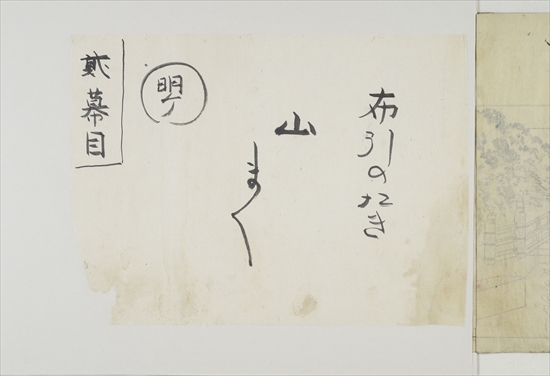 布引のたき
山まく
明丁
貮幕目